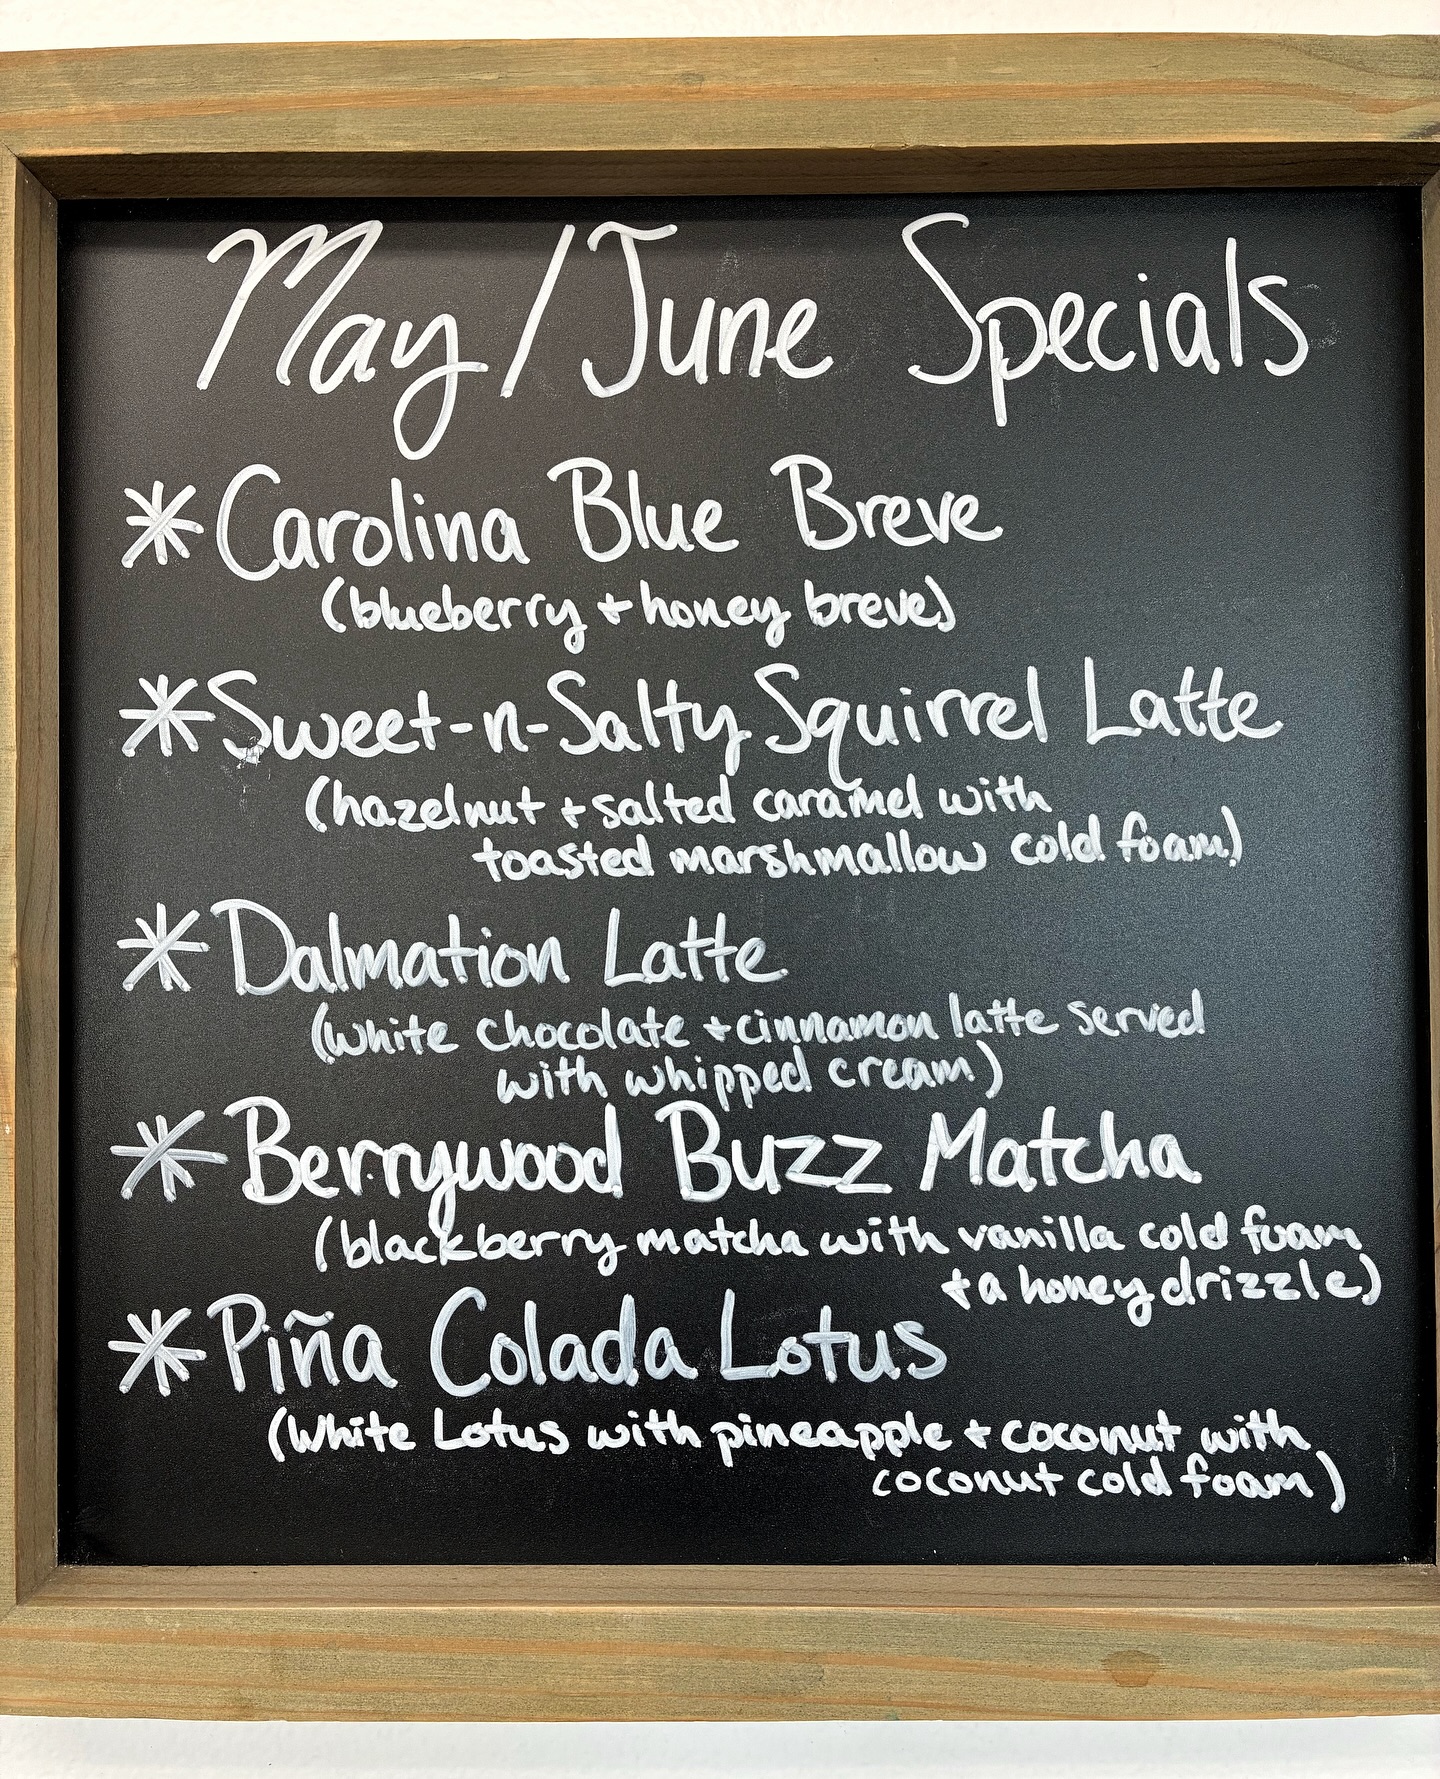 May/June Specials
* Carolina Blue Breve
(blueberry + honey breve)
* Sweet-n-Salty Squirrel Latte
(hazelnut + salted caramel with
toasted marshmallow cold foam)
* Dalmation Latte
(white chocolate + cinnamon latte served
with whipped cream)
* Berrywood Buzz Matcha
(blackberry matcha with vanilla cold foam
+ a honey drizzle)
* Piña Colada Lotus
(White Lotus with pineapple + coconut with
coconut cold foam)